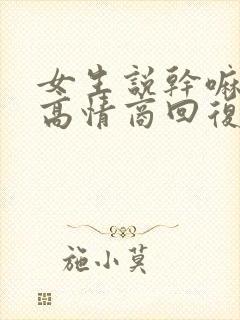 女生説幹嘛
高情商回復
施小莫